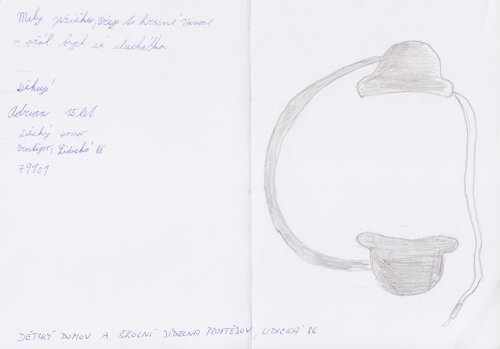 Milý ježíšku, přeju ti krásné vánoce
a přál bych si sluchátka
Děkuji
Adrian 15 let
Dětský domov
Lidická 86
79601
DĚTSKÝ DOMOV A ŠKOLNÍ JÍDELNA PROSTĚJOV, LIDICKÁ 86